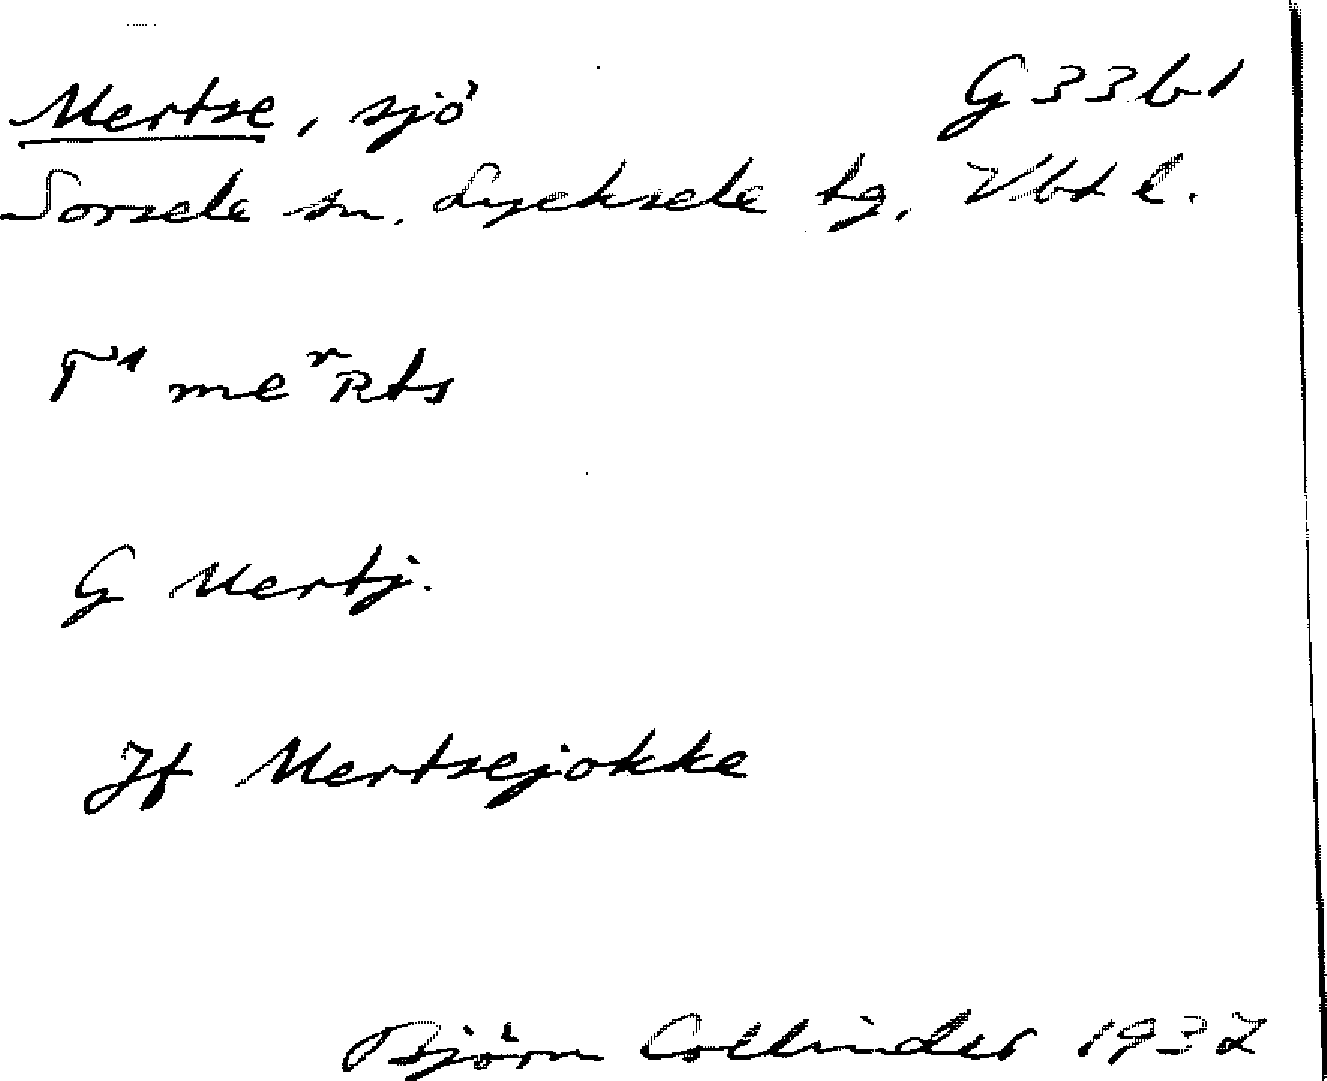 Mertse, sjö G 33 b1
Sorsele sn. Lycksele tg, Vbt l.
T¹ meʳʀts
G Mertj.
Jf Mertsejokke
Björn Collinder 1937